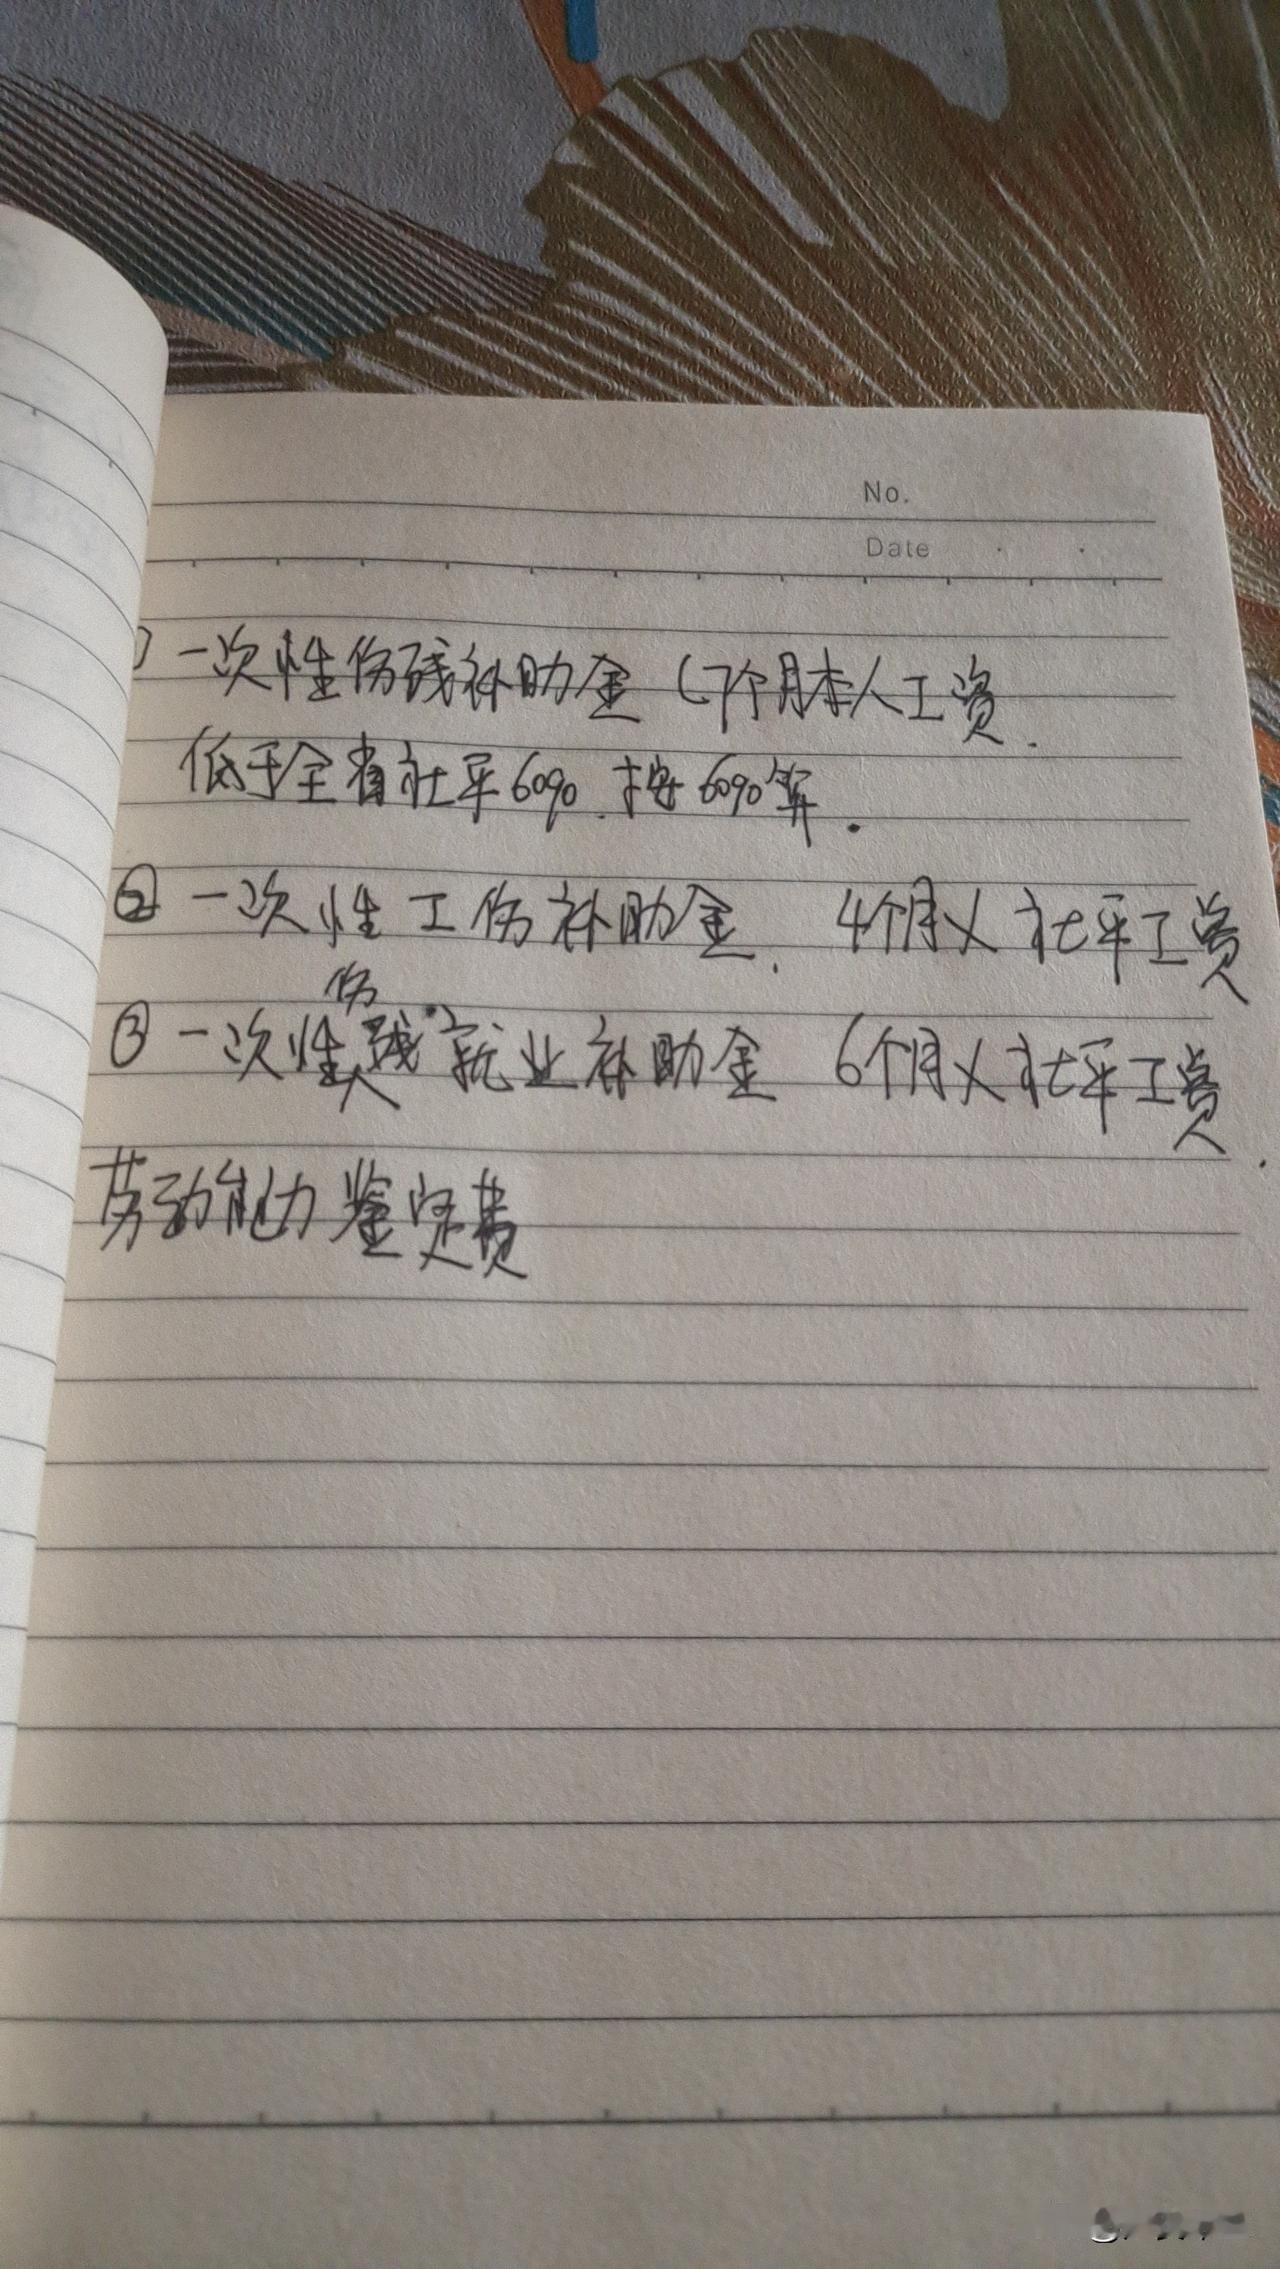 No.
Date
) 一次性伤残补助金 (7个月本人工资.
低于全省社平60%. 按60%算.
② 一次性工伤补助金. 4个月乂社平工资
③ 一次性伤残就业补助金 6个月乂社平工资.
劳动能力鉴定费